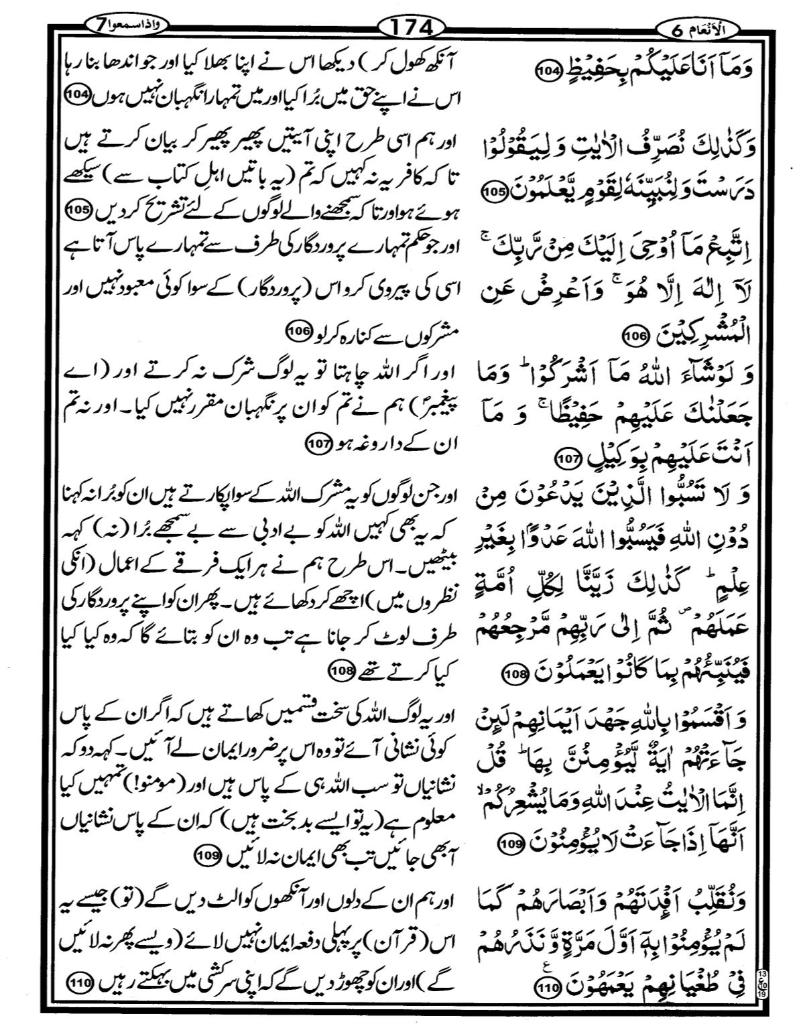 الانعام 6
174
واذاسمعوا 7
وَمَاۤ اَنَا عَلَيۡكُمۡ بِحَفِيۡظٍ 104
وَكَذٰلِكَ نُصَرِّفُ الۡاٰيٰتِ وَ لِيَقُوۡلُوۡا
دَرَسۡتَ وَلِنُبَيِّنَهٗ لِقَوۡمٍ يَّعۡلَمُوۡنَ 105
اِتَّبِعۡ مَاۤ اُوۡحِىَ اِلَيۡكَ مِنۡ رَّبِّكَ‌ ۚ
لَاۤ اِلٰهَ اِلَّا هُوَ‌ ۚ وَاَعۡرِضۡ عَنِ
الۡمُشۡرِكِيۡنَ 106
وَ لَوۡ شَآءَ اللّٰهُ مَاۤ اَشۡرَكُوۡا‌ ؕ وَمَا
جَعَلۡنٰكَ عَلَيۡهِمۡ حَفِيۡظًا‌ ۚ وَ مَاۤ
اَنۡتَ عَلَيۡهِمۡ بِوَكِيۡلٍ 107
وَ لَا تَسُبُّوا الَّذِيۡنَ يَدۡعُوۡنَ مِنۡ
دُوۡنِ اللّٰهِ فَيَسُبُّوا اللّٰهَ عَدۡوًۢا بِغَيۡرِ
عِلۡمٍ‌ ؕ كَذٰلِكَ زَيَّنَّا لِكُلِّ اُمَّةٍ
عَمَلَهُمۡ ثُمَّ اِلٰى رَبِّهِمۡ مَّرۡجِعُهُمۡ
فَيُنَبِّئُهُمۡ بِمَا كَانُوۡا يَعۡمَلُوۡنَ 108
وَ اَقۡسَمُوۡا بِاللّٰهِ جَهۡدَ اَيۡمَانِهِمۡ لَئِنۡ
جَآءَتۡهُمۡ اٰيَةٌ لَّيُؤۡمِنُنَّ بِهَا‌ ؕ قُلۡ
اِنَّمَا الۡاٰيٰتُ عِنۡدَ اللّٰهِ‌ وَمَا يُشۡعِرُكُمۡۙ
اَنَّهَاۤ اِذَا جَآءَتۡ لَا يُؤۡمِنُوۡنَ 109
وَنُقَلِّبُ اَفۡـِٕدَتَهُمۡ وَاَبۡصَارَهُمۡ كَمَا
لَمۡ يُؤۡمِنُوۡا بِهٖۤ اَوَّلَ مَرَّةٍ وَّنَذَرُهُمۡ
فِىۡ طُغۡيَانِهِمۡ يَعۡمَهُوۡنَ 110
آنکھ کھول کر) دیکھا اس نے اپنا بھلا کیا اور جو اندھا بنا رہا
اس نے اپنے حق میں بُرا کیا اور میں تمہارا نگہبان نہیں ہوں 104
اور ہم اسی طرح اپنی آیتیں پھیر پھیر کر بیان کرتے ہیں
تاکہ کافر یہ نہ کہیں کہ تم (یہ باتیں اہلِ کتاب سے) سیکھے
ہوئے ہو اور تاکہ سمجھنے والے لوگوں کے لئے تشریح کر دیں 105
اور جو حکم تمہارے پروردگار کی طرف سے تمہارے پاس آتا ہے
اسی کی پیروی کرو اس (پروردگار) کے سوا کوئی معبود نہیں اور
مشرکوں سے کنارہ کرلو 106
اور اگر اللہ چاہتا تو یہ لوگ شرک نہ کرتے اور (اے
پیغمبرؐ) ہم نے تم کو ان پر نگہبان مقرر نہیں کیا۔ اور نہ تم
ان کے داروغہ ہو 107
اور جن لوگوں کو یہ مشرک اللہ کے سوا پکارتے ہیں ان کو بُرا نہ کہنا
کہ یہ بھی کہیں اللہ کو بے ادبی سے بے سمجھے بُرا (نہ) کہہ
بیٹھیں۔ اس طرح ہم نے ہر ایک فرقے کے اعمال (انکی
نظروں میں) اچھے کر دکھائے ہیں۔ پھر ان کو اپنے پروردگار کی
طرف لوٹ کر جانا ہے تب وہ ان کو بتائے گا کہ وہ کیا کیا
کیا کرتے تھے 108
اور یہ لوگ اللہ کی سخت قسمیں کھاتے ہیں کہ اگر ان کے پاس
کوئی نشانی آئے تو وہ اس پر ضرور ایمان لے آئیں۔ کہہ دو کہ
نشانیاں تو سب اللہ ہی کے پاس ہیں اور (مومنو!) تمہیں کیا
معلوم ہے (یہ تو ایسے بدبخت ہیں) کہ ان کے پاس نشانیاں
آ بھی جائیں تب بھی ایمان نہ لائیں 109
اور ہم ان کے دلوں اور آنکھوں کو الٹ دیں گے (تو) جیسے یہ
اس (قرآن) پر پہلی دفعہ ایمان نہیں لائے (ویسے پھر نہ لائیں
گے) اور ان کو چھوڑ دیں گے کہ اپنی سرکشی میں بہکتے رہیں 110
13
ع
19